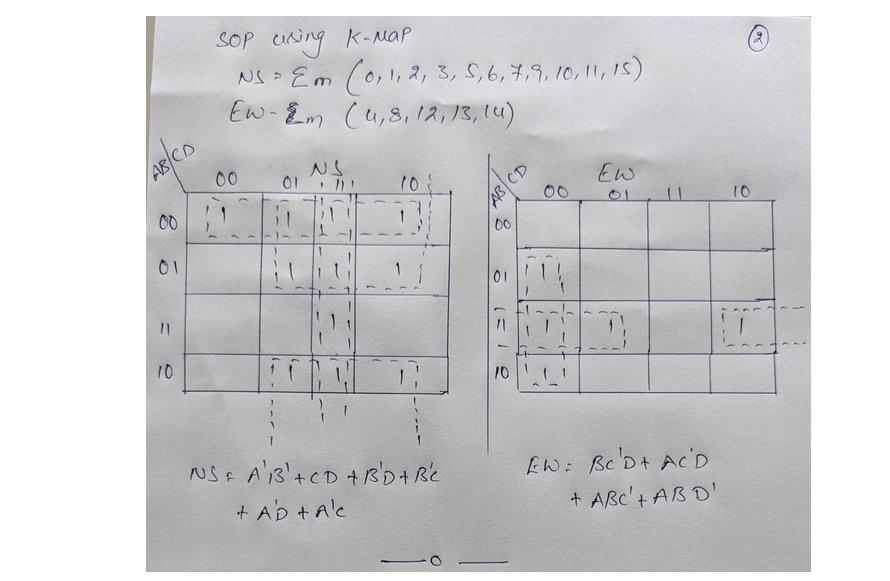 SOP using K-MAP
2
NS = Σm (0,1,2,3,5,6,7,9,10,11,15)
EW - Σm (4,8,12,13,14)
AB CD
NS
00 01 11 10
00 1 1 1 1
01 1 1 1
11 1
10 1 1 1
AB CD
EW
00 01 11 10
00
01 1
11 1 1 1
10 1
NS = A'B' + CD + B'D + B'C
+ A'D + A'C
EW = BC'D + AC'D
+ ABC' + ABD'
—o—